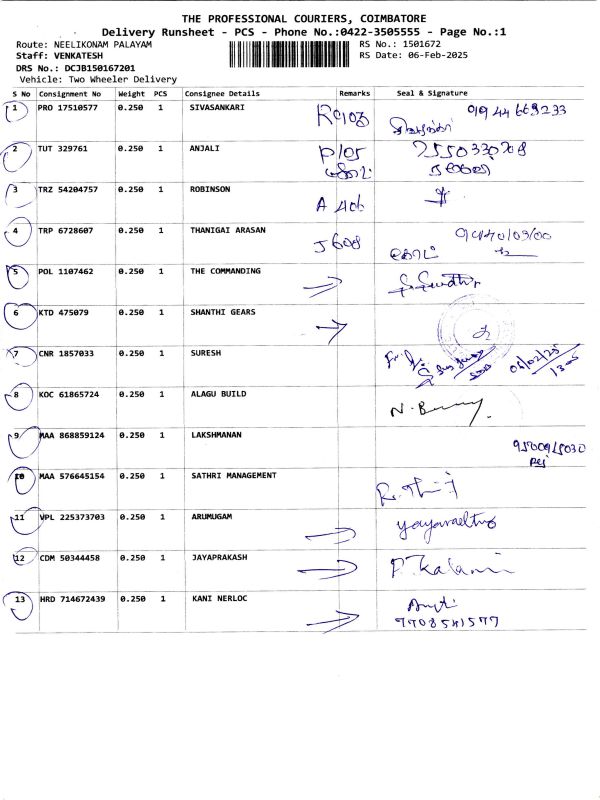 THE PROFESSIONAL COURIERS, COIMBATORE
Delivery Runsheet - PCS - Phone No.:0422-3505555 - Page No.:1
Route: NEELIKONAM PALAYAM RS No.: 1501672
Staff: VENKATESH RS Date: 06-Feb-2025
DRS No.: DCJB150167201
Vehicle: Two Wheeler Delivery
S No Consignment No Weight PCS Consignee Details Remarks Seal & Signature
1 PRO 17510577 0.250 1 SIVASANKARI
2 TUT 329761 0.250 1 ANJALI P105
3 TRZ 54204757 0.250 1 ROBINSON A 406
4 TRP 6728607 0.250 1 THANIGAI ARASAN J608
5 POL 1107462 0.250 1 THE COMMANDING
6 KTD 475079 0.250 1 SHANTHI GEARS
7 CNR 1857033 0.250 1 SURESH 06/02/25
8 KOC 61865724 0.250 1 ALAGU BUILD
9 MAA 868859124 0.250 1 LAKSHMANAN
10 MAA 576645154 0.250 1 SATHRI MANAGEMENT
11 VPL 225373703 0.250 1 ARUMUGAM
12 CDM 50344458 0.250 1 JAYAPRAKASH P. Kalami
13 HRD 714672439 0.250 1 KANI NERLOC
7708541577